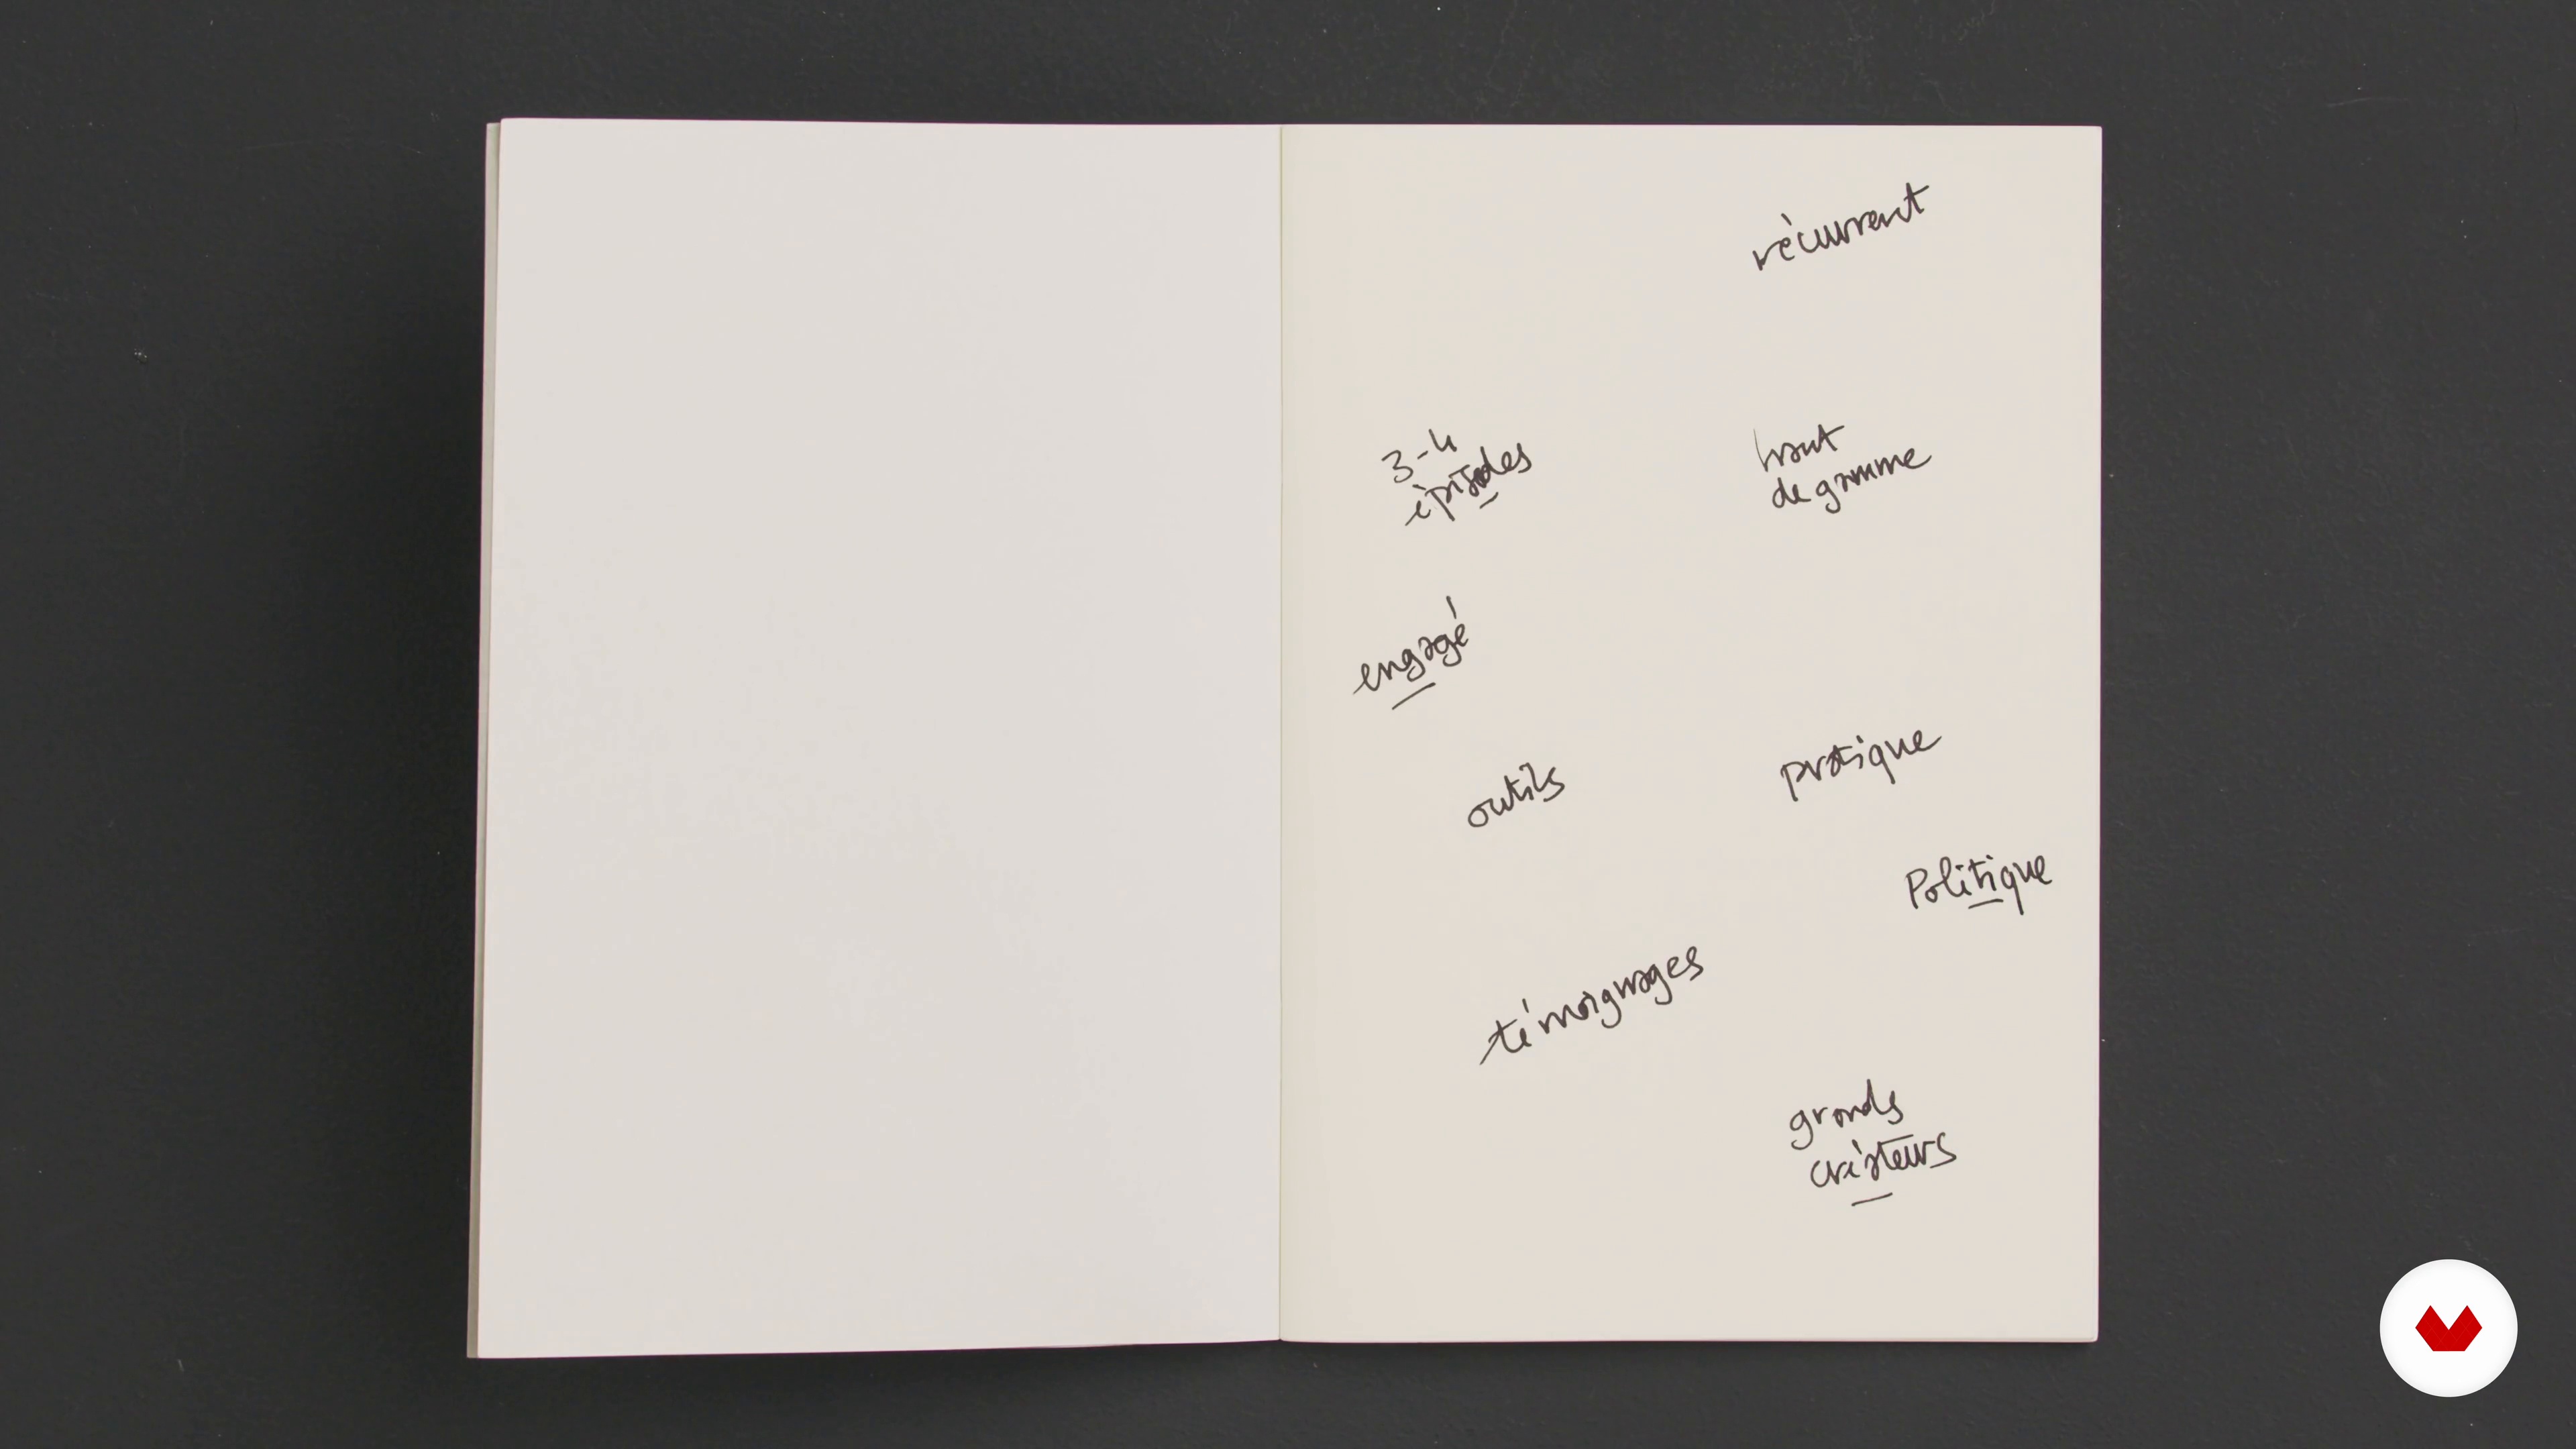 récurrent
3-4
épisodes
haut
de gamme
engagé
outils
pratique
Politique
témoignages
grands
créateurs